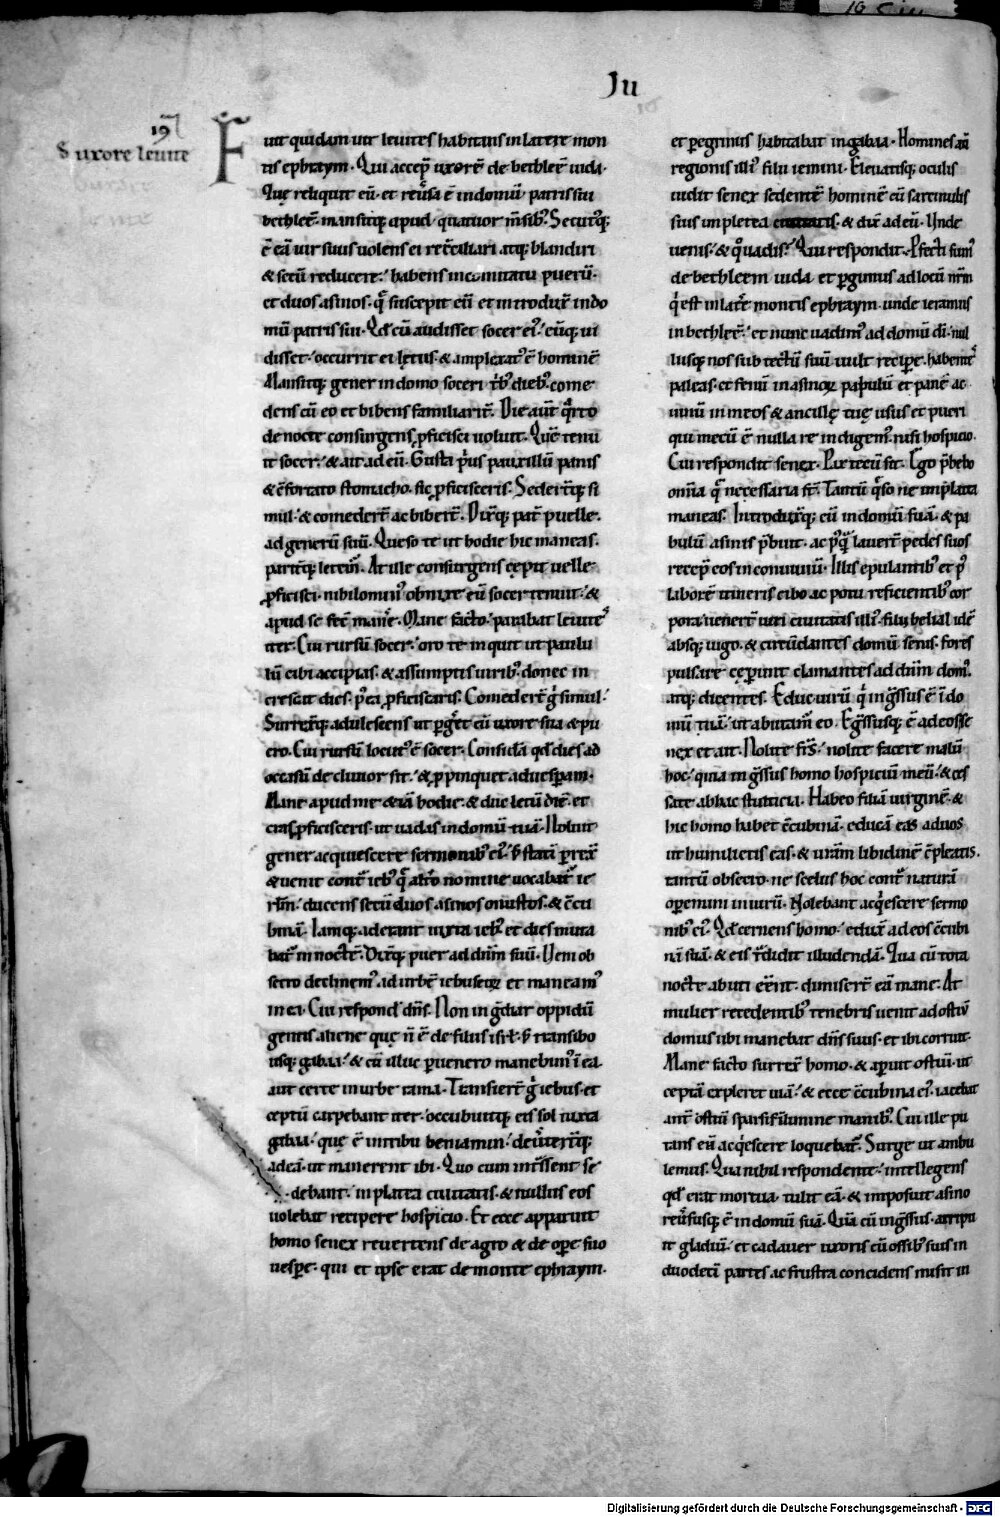 Ju
19
S uxore leuite
Fuit quidam uir leuites habitans in latere mon
tis ephraym. Qui accep̄ uxorē de bethleē iuda.
Quę reliquit eū. et reu͛sa ē in domū patris sui
bethleē. mansitq; apud quatuor m̄sib;. Secutusq;
ē eā uir suus uolens ei rec̄ciliari atq; blandiri
& secū reducere. habens in comitatu puerū.
et duos asinos. q̄ suscepit eū et introdux̄ in do
mū patris sui. Qd̄ cū audisset socer ei᷒. eūq; ui
disset. occurrit ei lętus. & amplexat᷒ ē hominē
Mansitq; gener in domo soceri tͥb; dieb; come
dens cū eo et bibens familiarit̄. Die aut̄ q͛rto
de nocte consurgens. p̱ficisci uoluit. Quē tenu
it socer. & ait ad eū. Gusta p͛us pauxillū panis
& c̄fortato stomacho. sic p̱ficisceris. Sedert̄q; si
mul. & comedert̄ ac bibert̄. Dix̄q; pat̄ puelle.
ad generū suū. Queso te ut hodie hic maneas.
parit̄q; letem᷒. At ille consurgens cępit uelle
p̱ficisci. nihilomin᷒ obnixe eū socer tenuit. &
apud se fec̄ man͛e. Mane facto. parabat leuites
iter. Cui rursū socer. oro te inquit ut paulu
lū cibi accipias. & assumptis uirib; donec in
crescat dies. p̄ea p̱ficiscaris. Comedert̄ g͛ simul.
Surrex̄q; adulescens ut p̱g͛et cū uxore sua & pu
ero. Cui rursū locut᷒ ē socer. Considā qd̄ dies ad
occasū decliuior sit. & p̱pinquet ad uesp̱am.
Mane apud me etiā hodie. & duc letū diē. et
cras p̱ficisceris. ut uadas in domū tuā. Noluit
gener acquiescere sermonib; ei᷒. s; statī p̱rex̄
& uenit cont͛ ieb; q̄ alt͛o nomine uocabat͛ ie
rl̄m. ducens secū duos asinos onustos. & c̄cu
binā. Iamq; aderant iuxta ieb; et dies muta
bat͛ in nocte. Dix̄q; puer ad dn̄m suū. Ueni ob
secro declinem᷒. ad urbē iebuseoꝝ et maneam᷒
in ea. Cui respond̄ dn̄s. Non ing͛diar oppidū
gentis aliene que n̄ ē de filiis isrl̄. s; transibo
usq; gabaa. & cū illuc p̱uenero manebim᷒ ī ea.
aut certe in urbe rama. Transiert̄ g͛ iebus. et
ceptū carpebant iter. occubuitq; eis sol iuxta
gabaa. quę ē in tribu beniamin. deu͛tert̄q;
ad eā. ut manerent ibi. Quo cum int͛ssent se
debant. in platea ciuitatis. & nullus eos
uolebat recipere hospicio. Et ecce apparuit
homo senex reuertens de agro & de ope̱ suo
uesp̱e. qui et ipse erat de monte ephraym.
et p̱egrinus habitabat in gabaa. Homines aū
regionis illi᷒ filii iemini. Eleuatisq; oculis
uidit senex sedentē hominē cū sarcinulis
suis in platea ciuitatis. & dix̄ ad eū. Unde
uenis. & q͛ uadis. Qui respondit. P̱fecti sum᷒
de bethleem iuda et p̱gimus ad locū nr̄m
q͛ est in lat̄e montis ephraym. unde ieramus
in bethleē. et nunc uadim᷒ ad domū dī. nul
lusq; nos sub tectū suū uult recipe̱. habentes
paleas. et fenū in asinoꝝ pabulū et panē ac
uinū in meos & ancillę tuę usus et pueri
qui mecū ē nulla re indigem᷒ nisi hospicio.
Cui respondit senex. Pax tecū sit. Ego p̄bebo
omīa q̄ necessaria st̄. Tantū q͛so ne in platea
maneas. Introdux̄q; eū in domū suā. & pa
bulū asinis p̄buit. ac p᷒q̄ lauert̄ pedes suos
recep̄ eos in conuiuiū. Illis epulantib; et p᷒
laborē itineris cibo ac potu reficientib; cor
pora. uenert̄ uiri ciuitatis illi᷒. filii belial id ē
absq; iugo. & circūdantes domū senis. fores
pulsare cęperunt clamantes ad dn̄m dom᷒.
atq; dicentes. Educ uirū q͛ ing͛ssus ē ī do
mū tuā. ut abutam᷒ eo. Eg͛ssusq; ē ad eos se
nex et ait. Nolite frs̄. nolite facere malū
hoc. quia ing͛ssus homo hospiciū meū. & ces
sate ab hac stulticia. Habeo filiā uirginē. &
hic homo habet c̄cubinā. educā eas ad uos
ut humilietis eas. & ur̄am libidinē c̄pleatis.
tantū obsecro. ne scelus hoc cont͛ naturā
ope̱mini in uirū. Nolebant acq͛escere sermo
nib; ei᷒. Qd̄ cernens homo. edux̄ ad eos c̄cubi
nā suā. & eis t͛didit illudendā. Qua cū tota
nocte abuti eēnt. dimisert̄ eā mane. At
mulier recedentib; tenebris uenit ad ostiū
domus ubi manebat dn̄s suus. et ibi corruit.
Mane facto surrex̄ homo. & ape̱ruit ostiū. ut
ceptā expleret uiā. & ecce c̄cubina ei᷒. iacebat
ant̄ ostiū sparsis ī limine manib;. Cui ille pu
tans eū acq͛escere loquebat͛. Surge ut ambu
lemus. Qua nihil respondente. intellegens
qd̄ erat mortua. tulit eā. & imposuit asino
reu͛susq; ē in domū suā. Quā cū ing͛ssus. arripu
it gladiū. et cadauer uxoris cū ossib; suis in
duodecī partes ac frustra concidens misit in